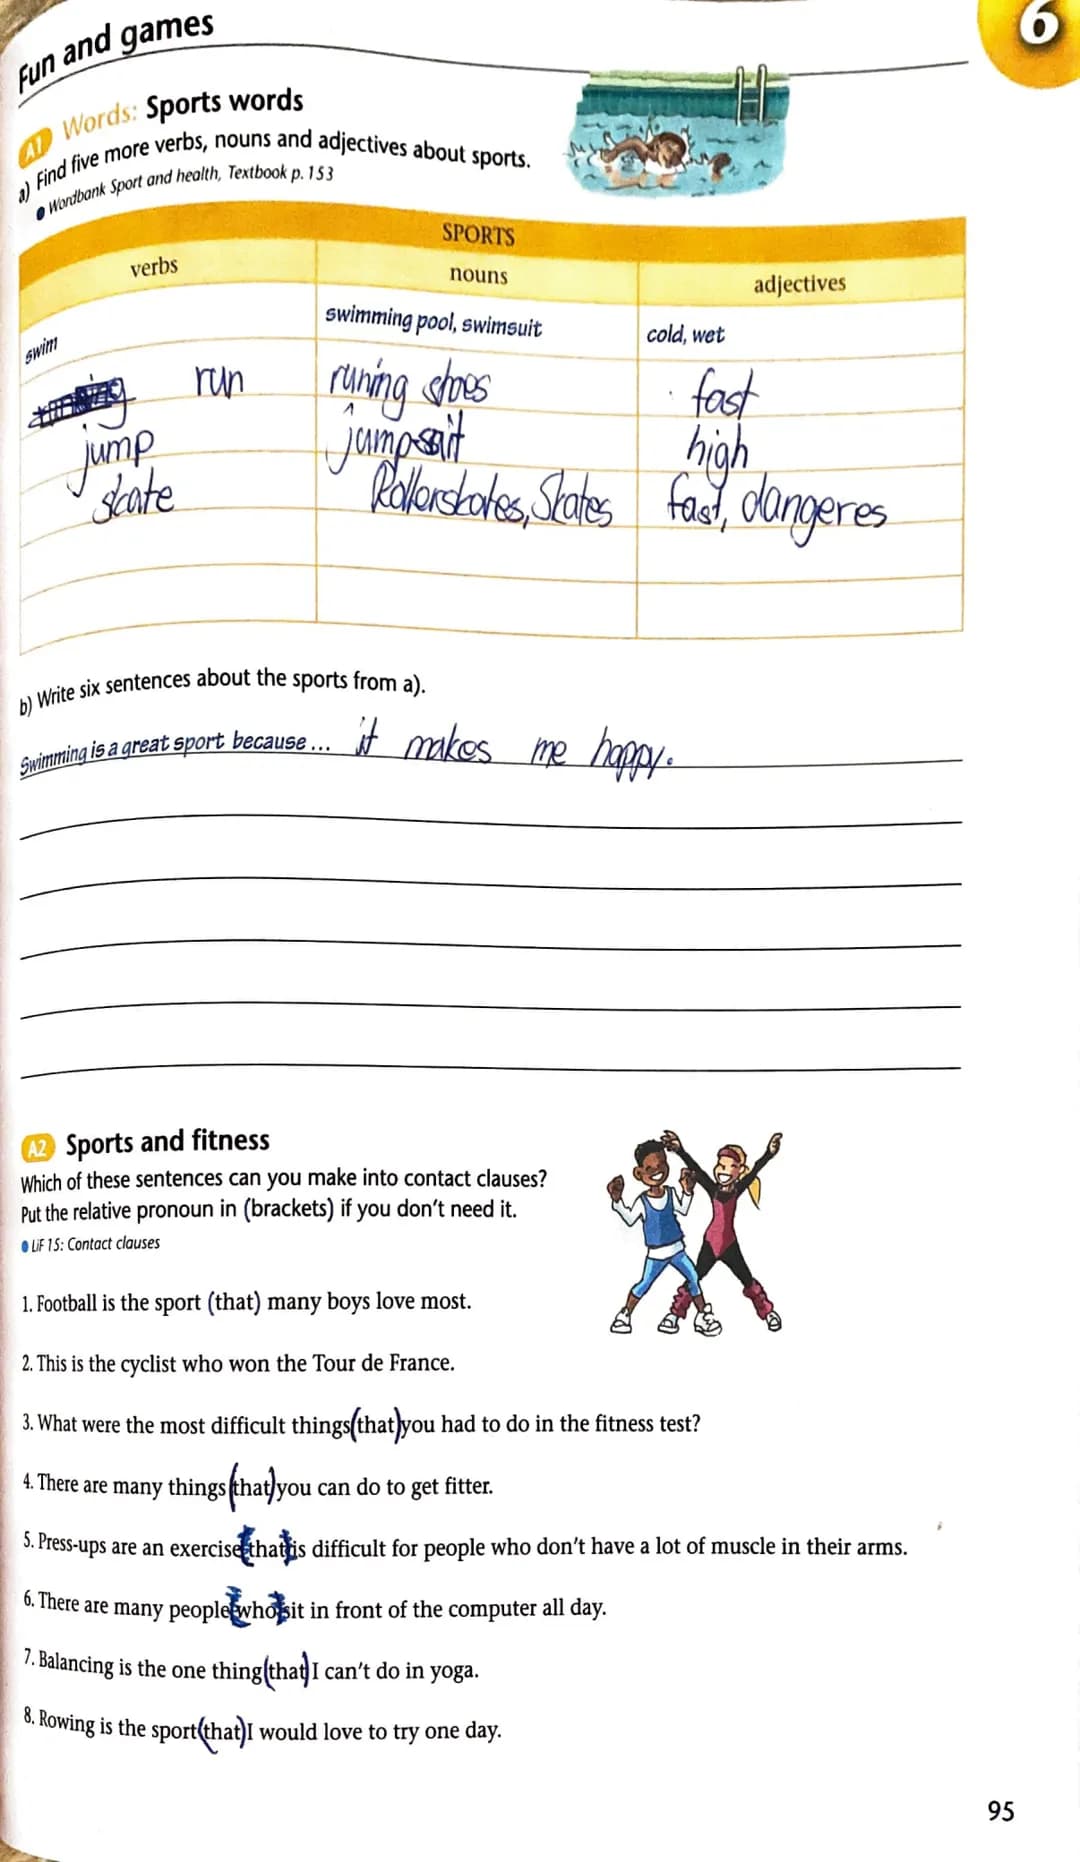 Fun and games
6
A1 Words: Sports words
a) Find five more verbs, nouns and adjectives about sports.
● Wordbank Sport and health, Textbook p. 153
SPORTS
verbs nouns adjectives
swim swimming pool, swimsuit cold, wet
run runing shoes fast
jump jumpsuit high
skate Rollerskates, Skates fast, dangeres
b) Write six sentences about the sports from a).
Swimming is a great sport because ... it makes me happy.
A2 Sports and fitness
Which of these sentences can you make into contact clauses?
Put the relative pronoun in (brackets) if you don't need it.
● LiF 15: Contact clauses
1. Football is the sport (that) many boys love most.
2. This is the cyclist who won the Tour de France.
3. What were the most difficult things (that) you had to do in the fitness test?
4. There are many things (that) you can do to get fitter.
5. Press-ups are an exercise that is difficult for people who don't have a lot of muscle in their arms.
6. There are many people who sit in front of the computer all day.
7. Balancing is the one thing (that) I can't do in yoga.
8. Rowing is the sport (that) I would love to try one day.
95